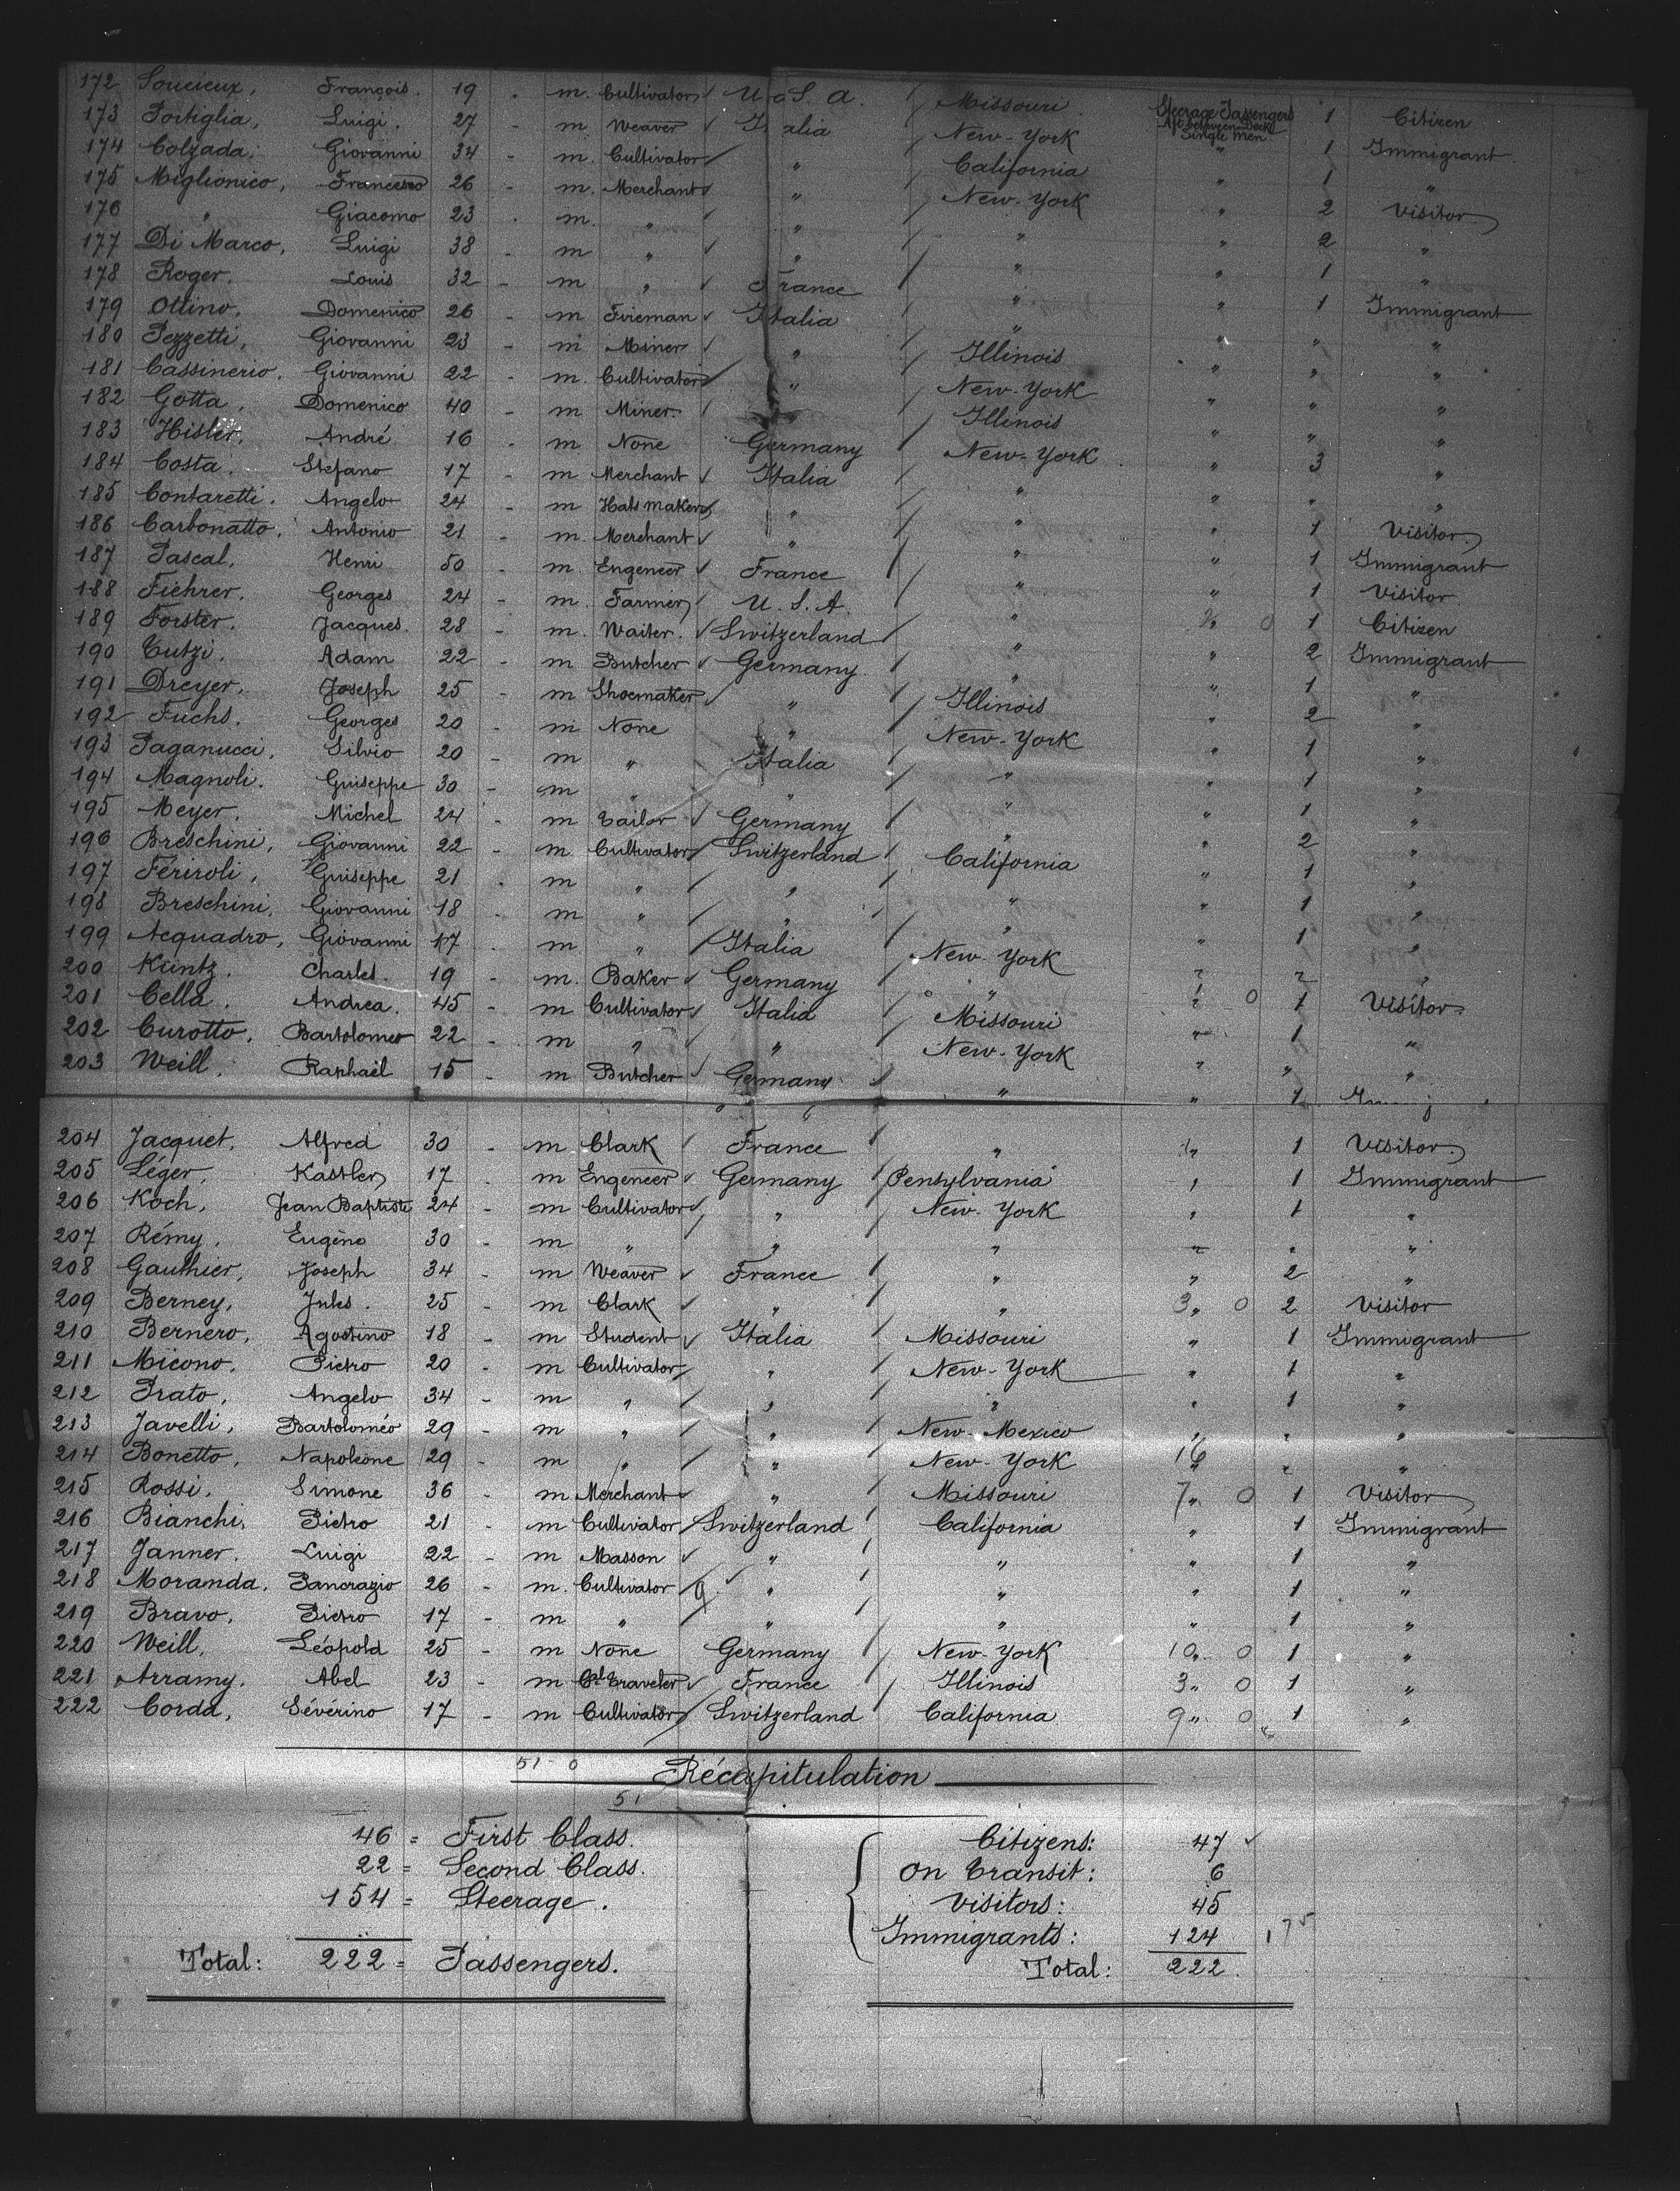 172 Soucieux, François. 19 - m. Cultivator U.S.A. Missouri Steerage Passengers Aft between Deck Single Men. 1 Citizen
173 Portiglia, Luigi. 27 - m Weaver Italia New-York " 1 Immigrant
174 Colzada, Giovanni 34 - m. Cultivator " California " 1 "
175 Miglionico, Francesco 26 - m. Merchant " New-York " 2 Visitor
176 " Giacomo 23 - m. " " " " 2 "
177 Di Marco, Luigi 38 - m " " " " 1 "
178 Roger, Louis 32 - m " France " " 1 Immigrant
179 Ottino, Domenico 26 - m Fvieman Italia " " " "
180 Pezzetti, Giovanni 23 - m Miner " Illinois " " "
181 Cassinerio. Giovanni 22 - m. Cultivator " New-York " " "
182 Gotta, Domenico 40 - m Miner. " Illinois " " "
183 Hisler, André 16 - m None Germany New-York " 3 "
184 Costa. Stefano 17 - m Merchant Italia " " " "
185 Contaretti. Angelo 24 - m Hats maker " " " 1 Visitor
186 Carbonatto. Antonio 21 - m. Merchant " " " 1 Immigrant
187 Pascal, Henri 50 - m. Engeneer France " " 1 Visitor
188 Fiehrer, Georges 24 - m. Farmer U.S.A. " " 0 1 Citizen
189 Forster, Jacques. 28 - m. Waiter. Switzerland " " 2 Immigrant
190 Cutzi, Adam 22 - m Butcher Germany " " 1 "
191 Dreyer, Joseph 25 - m Shoemaker " Illinois " 2 "
192 Fuchs. Georges 20 - m None " New-York " 1 "
193 Paganucci, Silvio 20 - m " Italia " " 1 "
194 Magnoli. Guiseppe 30 - m " " " " 1 "
195 Meyer. Michel 24 - m Tailor Germany " " 2 "
196 Breschini, Giovanni 22 - m Cultivator Switzerland California " 1 "
197 Fériroli, Guiseppe 21 - m " " " " 1 "
198 Breschini, Giovanni 18 - m " " " " 1 "
199 Acquadro, Giovanni 17 - m " Italia New-York " " "
200 Küntz. Charles. 19 - m. Baker Germany " " 0 1 Visitor
201 Cella. Andrea. 45 - m Cultivator Italia Missouri " 1 "
202 Curotto, Bartolomeo 22 - m " " New-York " " "
203 Weill, Raphaël 15 - m Butcher Germany " " 1
204 Jacquet, Alfred 30 - m Clark France " " 1 Visitor
205 Léger, Kastler 17 - m Engeneer Germany Pensylvania " 1 Immigrant
206 Koch, Jean Baptiste 24 - m Cultivator " New-York " 1 "
207 Rémy, Eugène 30 - m " " " " " "
208 Gauthier, Joseph 34 - m Weaver France " " 2 "
209 Berney, Jules. 25 - m Clark " " 3 " 0 2 Visitor
210 Bernero, Agostino 18 - m Student Italia Missouri " 1 Immigrant
211 Micono, Pietro 20 - m Cultivator " New-York " 1 "
212 Prato, Angelo 34 - m " " " " 1 "
213 Javelli, Bartoloméo 29 - m " " New-Mexico " " "
214 Bonetto, Napoleone 29 - m " " New-York 16 " " "
215 Rossi, Simone 36 - m Merchant " Missouri 7 " 0 1 Visitor
216 Bianchi, Pietro 21 - m Cultivator Switzerland California " 1 Immigrant
217 Janner. Luigi 22 - m Masson " " " 1 "
218 Moranda, Pancrazio 26 - m. Cultivator 9 " " " 1 "
219 Bravo, Pietro 17 - m " " " " 1 "
220 Weill, Léopold 25 - m None Germany New-York 10 " 0 1 "
221 Arramy. Abel 23 - m Cal Traveler France Illinois 3 " 0 1 "
222 Corda, Sévérino 17 - m Cultivator Switzerland California 9 " 0 1 "
51 0 Récapitulation
51
46 = First Class. Citizens: 47
22 = Second Class. On Transit: 6
154 = Steerage. Visitors: 45
Immigrants: 124 175
Total: 222 = Passengers. Total: 222